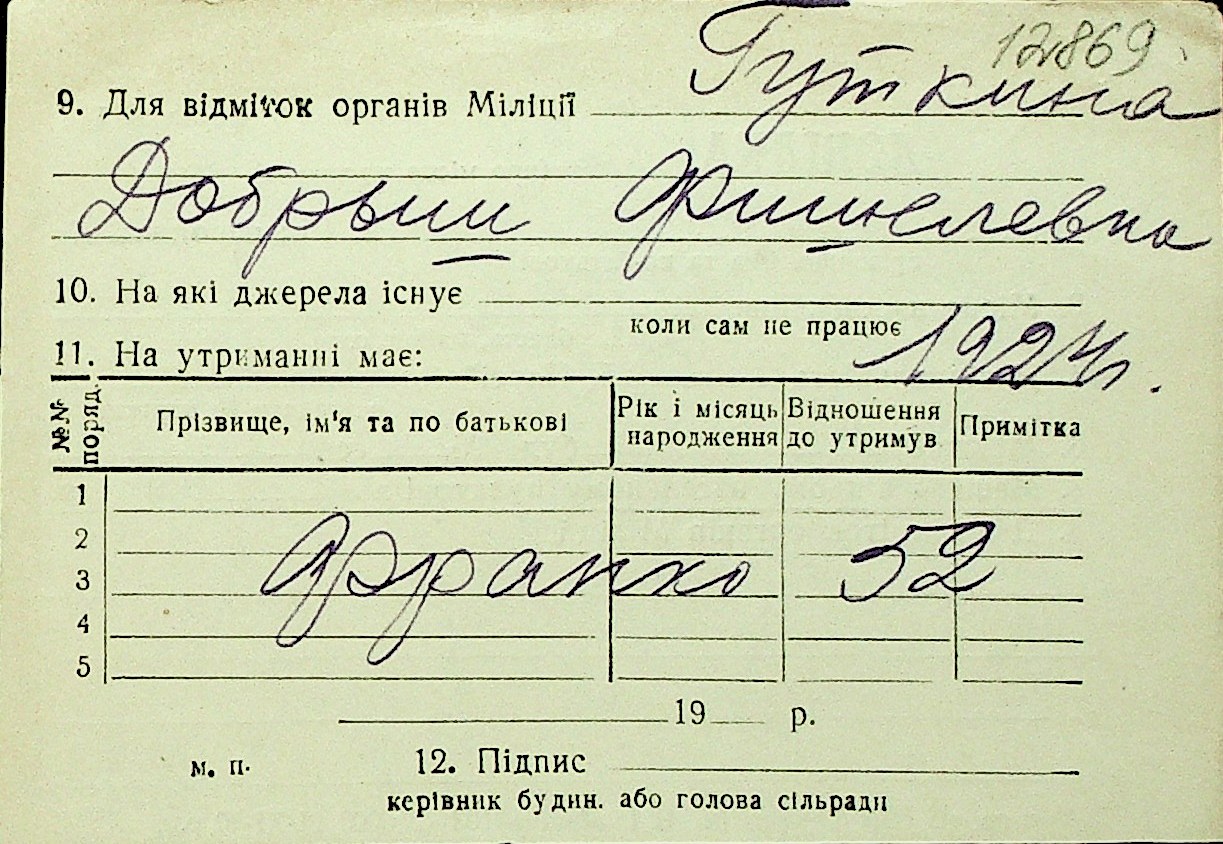 12869
9. Для відміток органів Міліції Гуткина
Добрыш Фишелевна
10. На які джерела існує
коли сам не працює
1924г.
11. На утриманні має:
№№ поряд. Прізвище, ім'я та по батькові Рік і місяць народження Відношення до утримув. Примітка
1
2
Франко 52
3
4
5
19 р.
м. п. 12. Підпис
керівник будин. або голова сільради